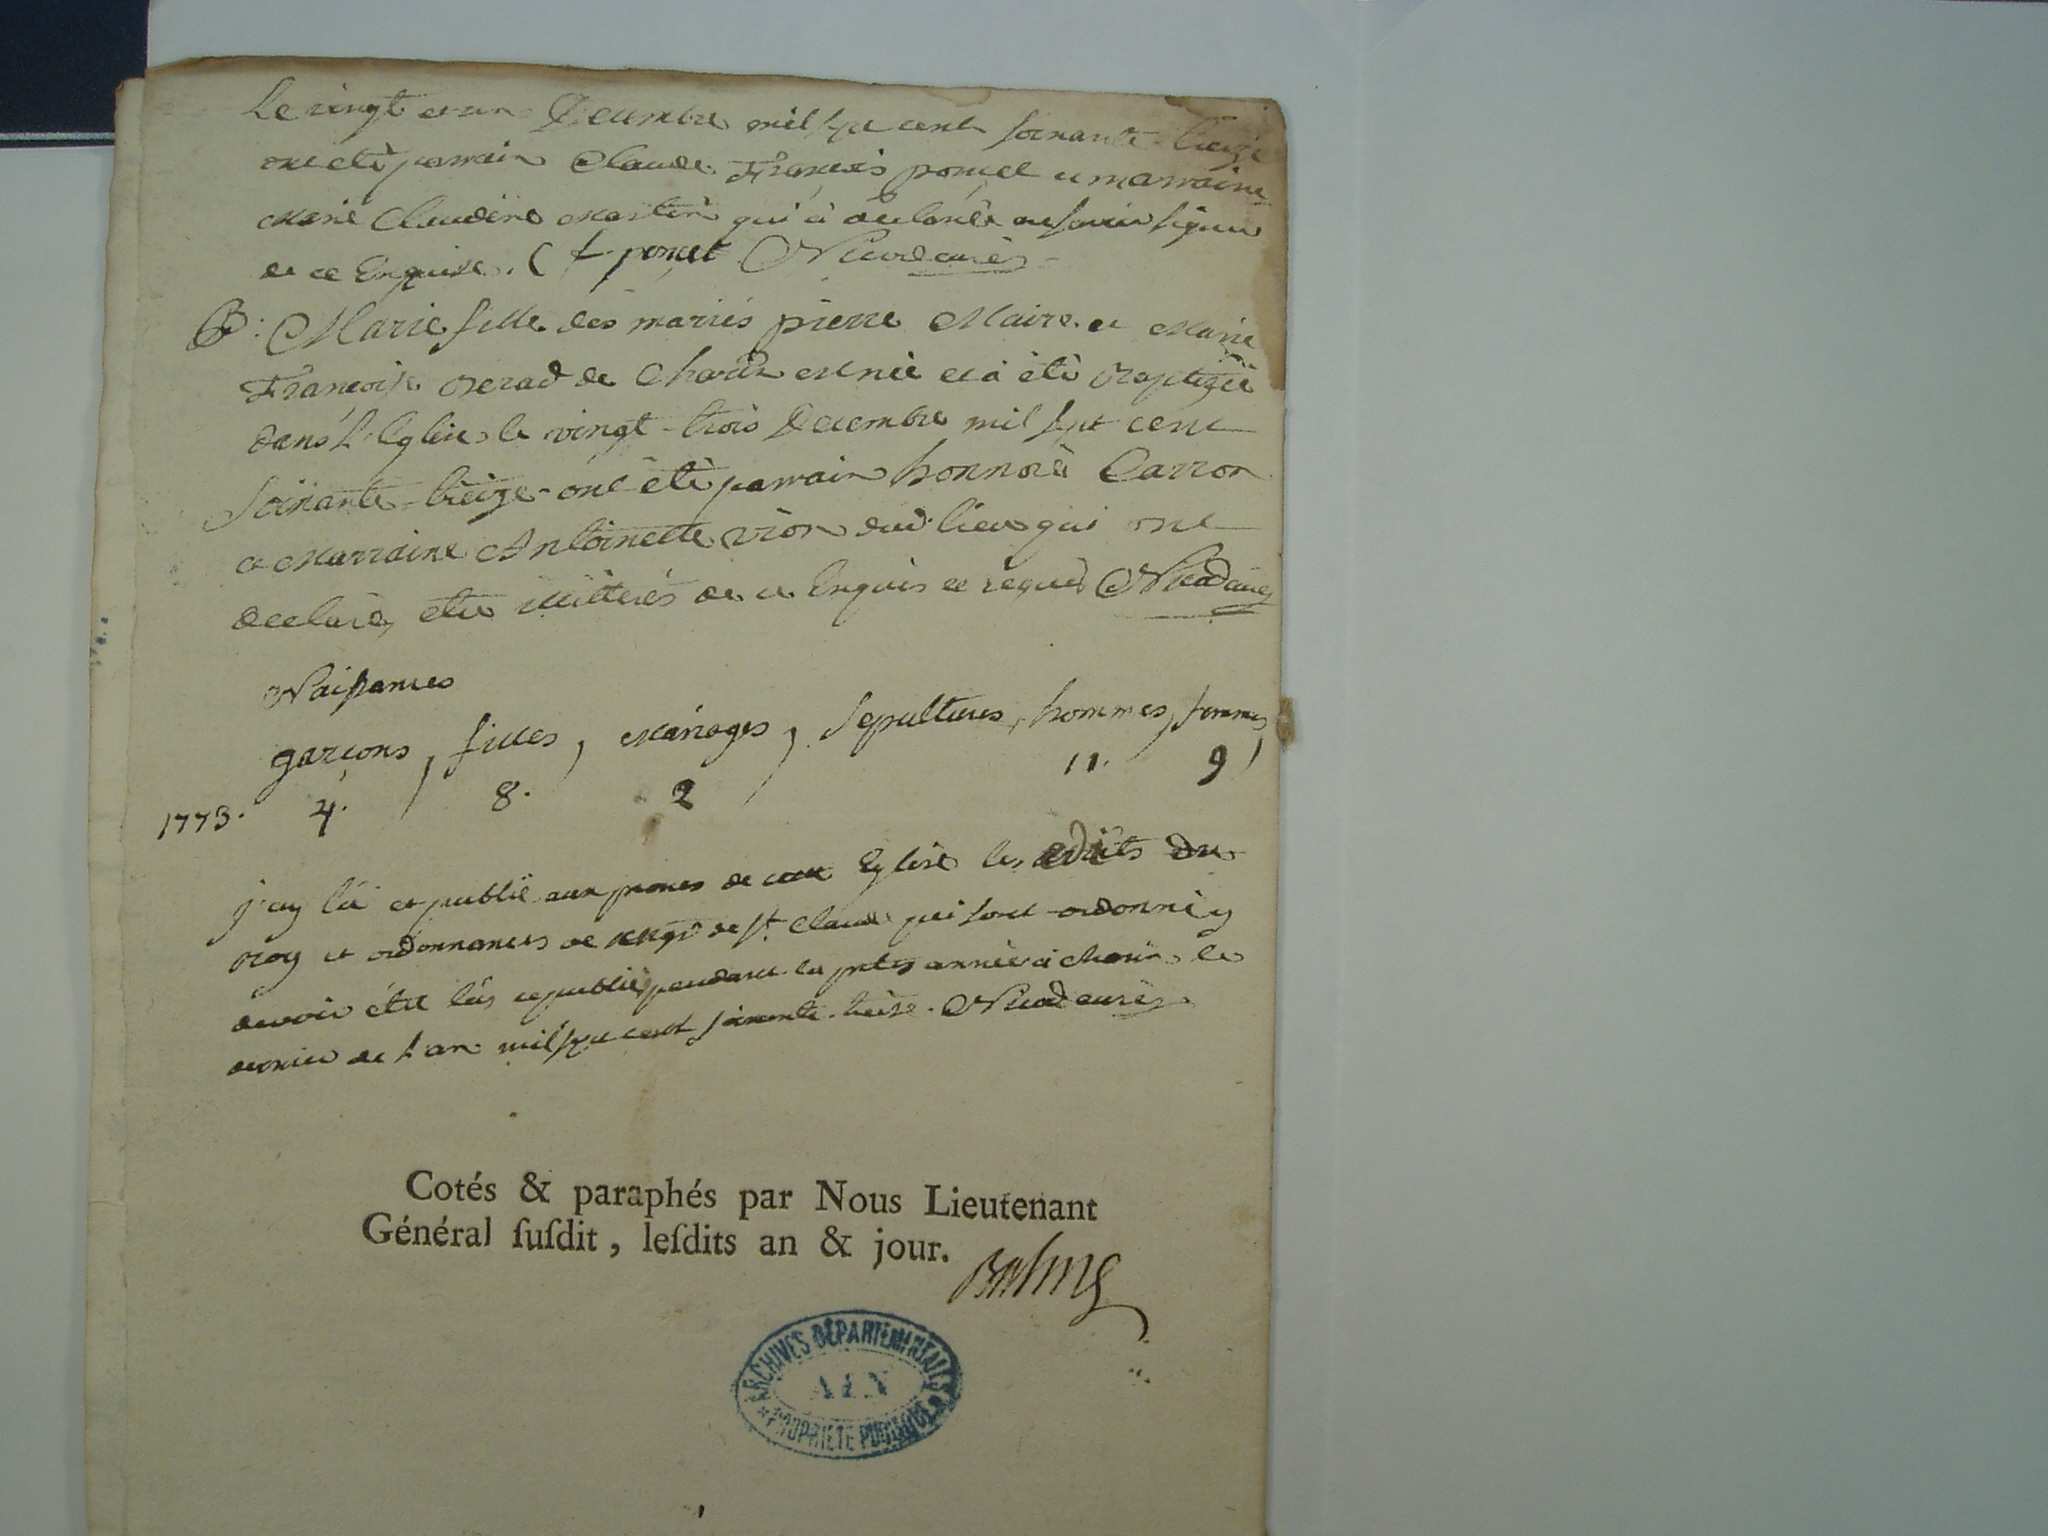 Le vingt et un Decembre mil sept cent soixante treize
ont été parrain Claude François poncet et marraine
Marie Claudine Martin qui a declaré ne savoir signer
de ce Enquise. C f poncet Nicod curé
B: Marie fille des mariés pierre Maire et Marie
Françoise de Charix est née et a été Baptizée
dans l'Eglise le vingt-trois Decembre mil sept cent
soixante-treize ont été parrain honnoré Carron
et Marraine Antoinette vion dud. lieu qui ont
declaré être illitterés de ce Enquis et requis Nicod curé
Naissances
garçons, filles, Mariages, sepultures, hommes, femmes
1773. 4. 8. 2 11. 9
j'ay lû et publié aux prones de cette Eglise les edits du
roy et ordonnances de Mgr de St. Claude qui sont ordonnés
devoir être lûs et publiés pendant la année à Charix le
dernier de l'an mil sept cent soixante-treize. Nicod curé
Cotés & paraphés par Nous Lieutenant
Général ſuſdit, leſdits an & jour.
ARCHIVES DÉPARTEMENTALES
AIN
PROPRIÉTÉ PUBLIQUE